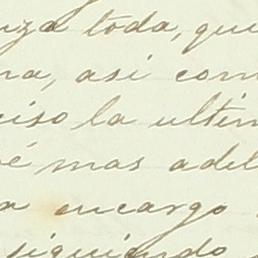 uza toda, que
na, asi com
iso la ultim
é mas adel
a encargo
siguiendo